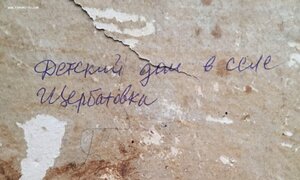 Детский дом в селе
Щербатовка